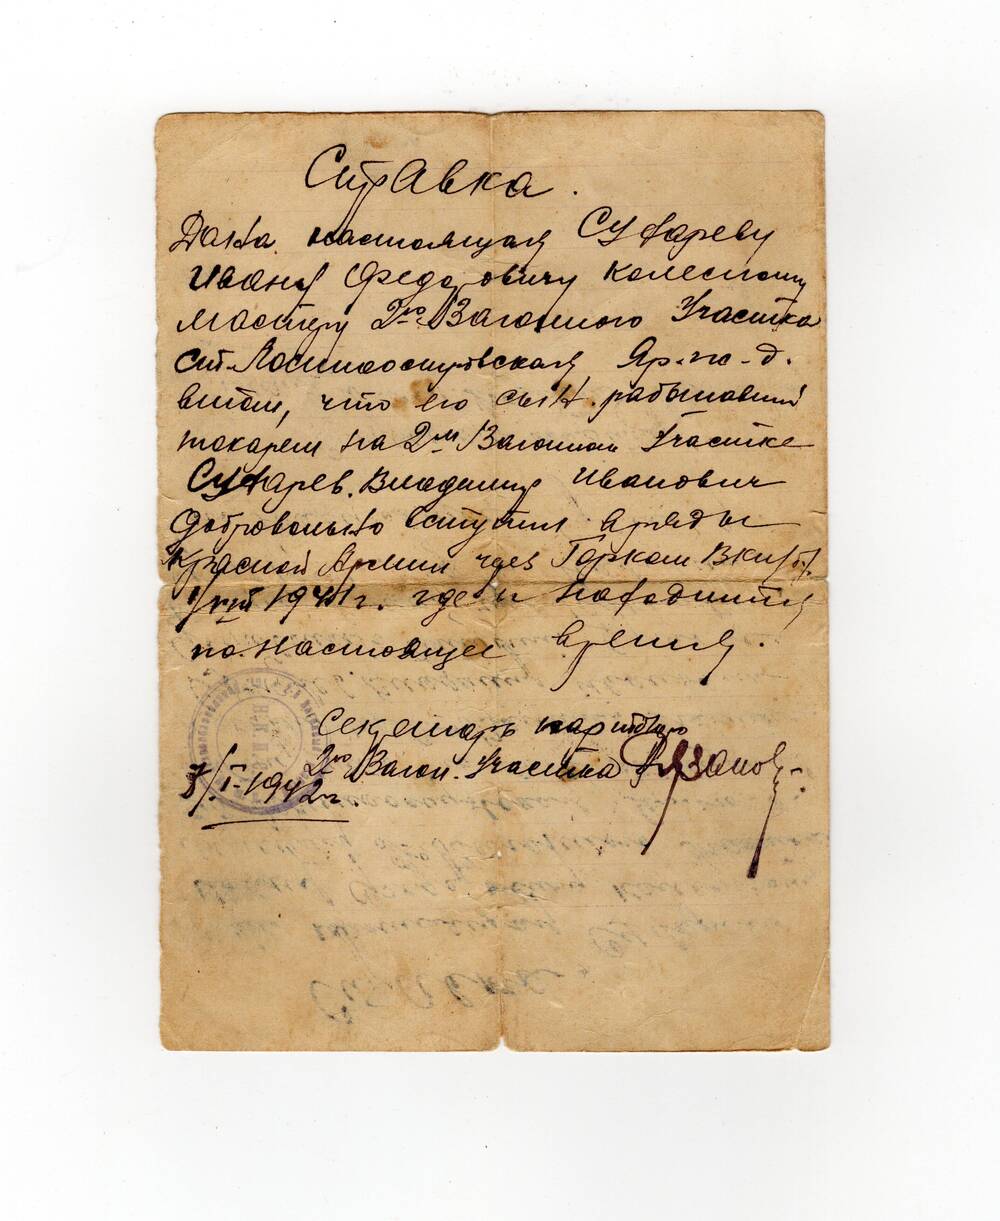 Справка.
Дана настоящая Сухареву
Ивану Федоровичу колесному
мастеру 2го Вагонного Участка
ст. Лосиноостровская Яр.ж.д.
втом, что его сын работавший
токарем на 2м Вагонном Участке
Сухарев Владимир Иванович
добровольно вступил в ряды
Красной Армии чрез Горком ВКП(б)
1941г. где и находится
по настоящее время.
Секретарь партбюро
2го Вагон. Участка Рязанов
/I-1942г